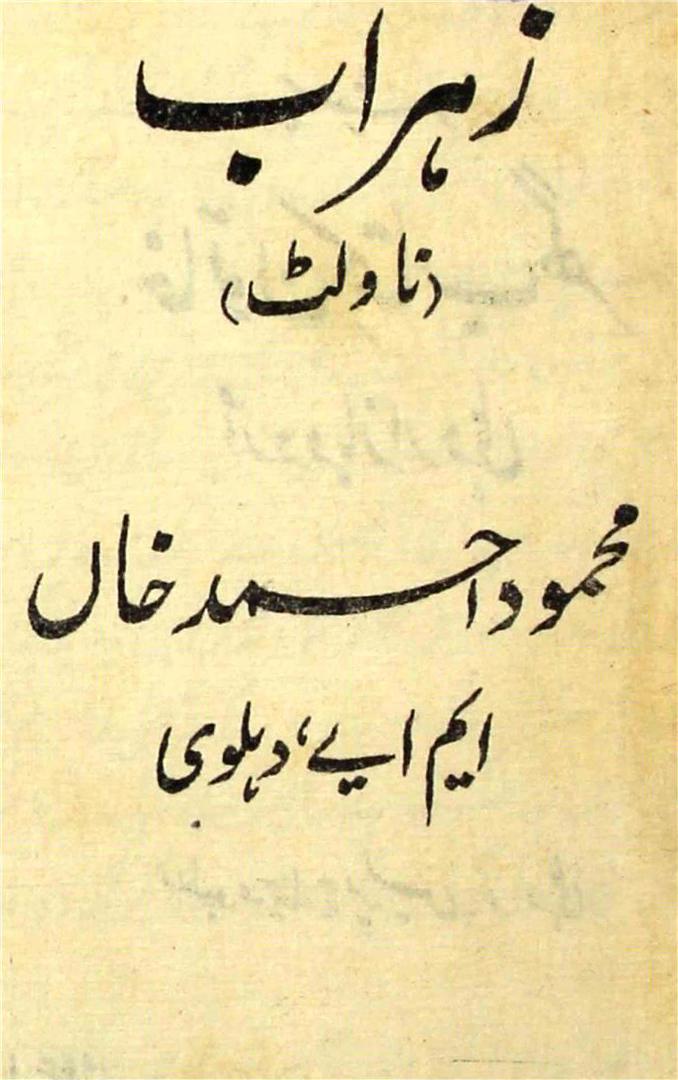 زہراب
(ناولٹ)
محمود احمد خاں
ایم اے، دہلوی